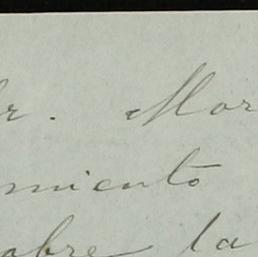 r. Mor
miento
abre la